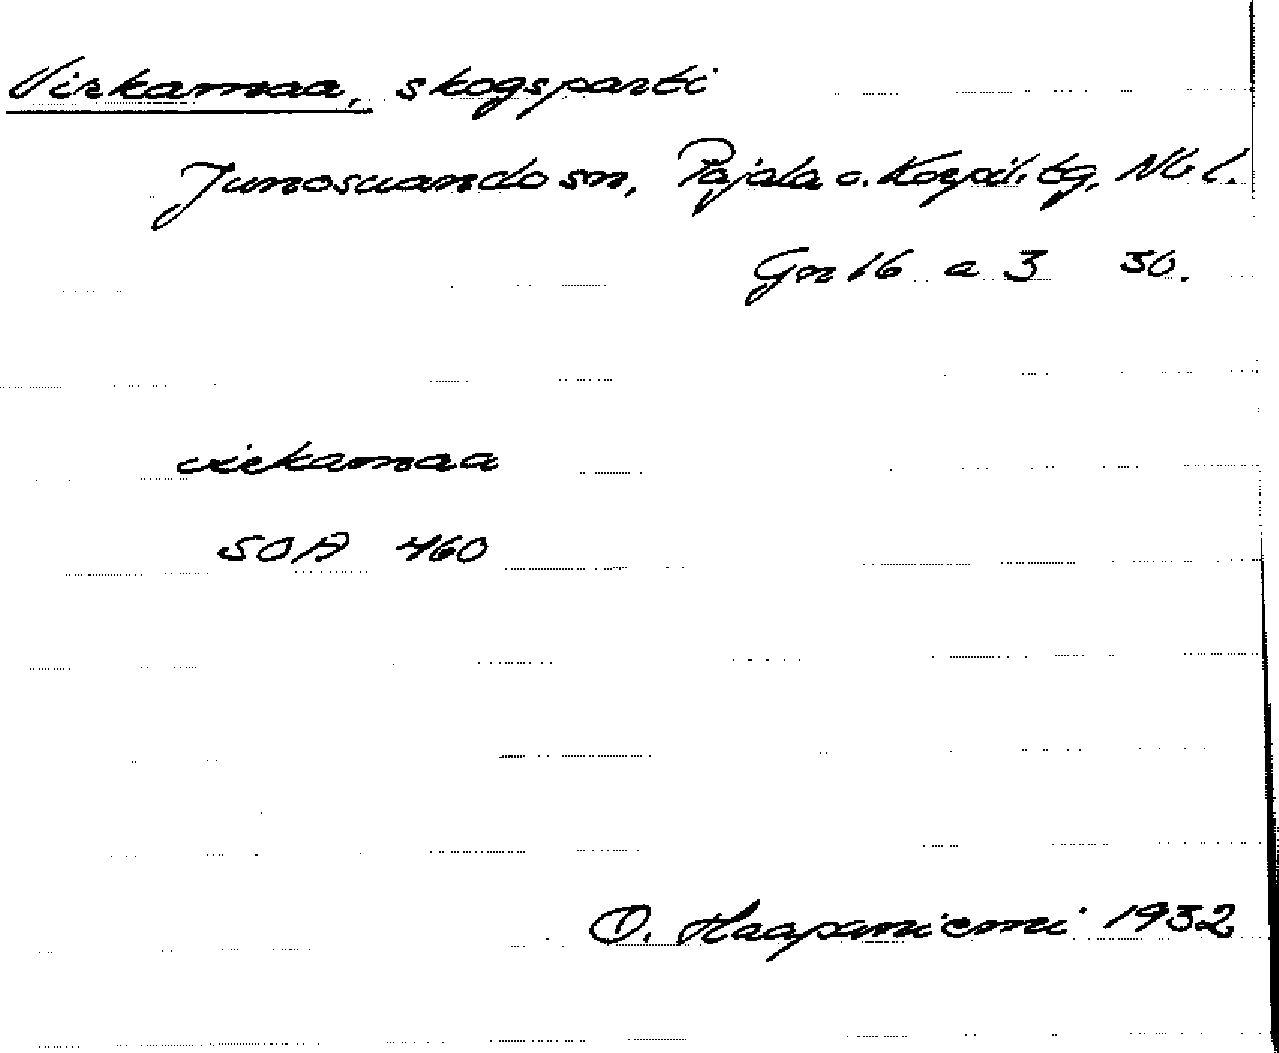 Virkamaa, skogsparti
Junosuando sn, Pajala o. Korpil. tg, Nb l.
Gr 16 a 3 30.
virkamaa
SOA 460
O. Haapaniemi 1932